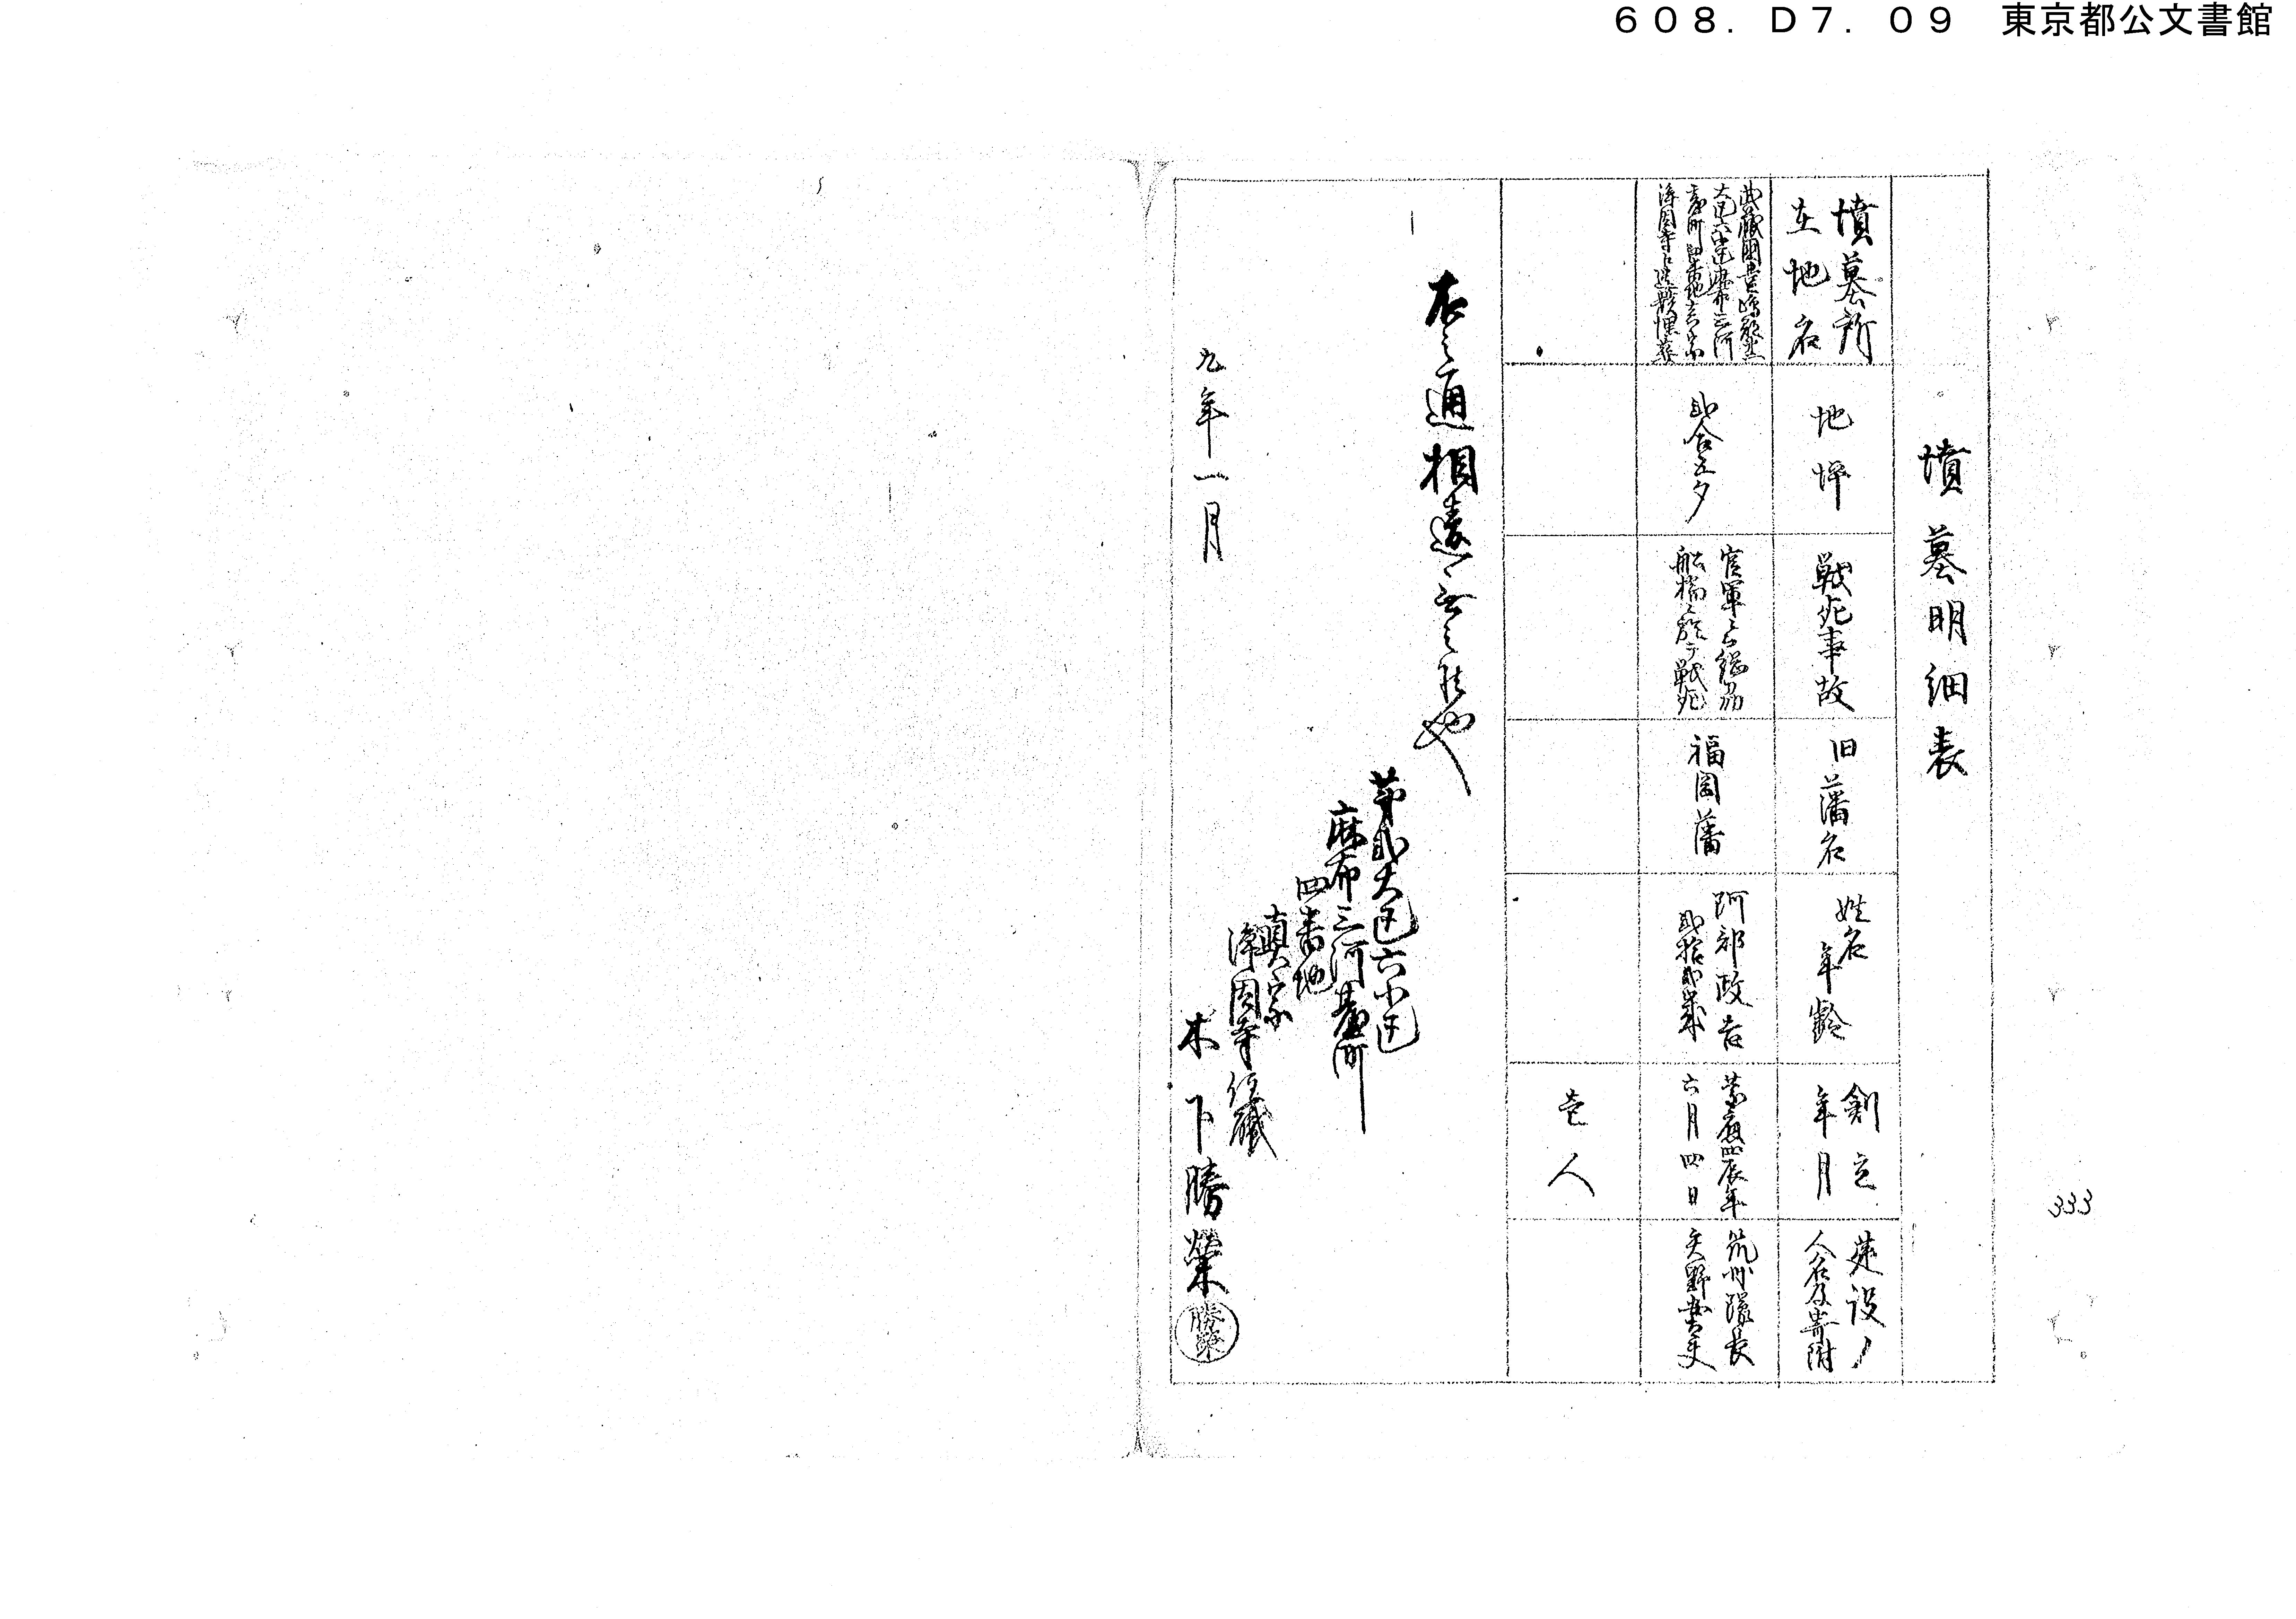 608. D7. 09 東京都公文書館
333
墳墓明細表
墳墓所
在地名
地坪
戦死事故
旧藩名
姓名
年齢
創立
年月
建設ノ
人名及寄附
武蔵国豊嶋郡第二
大区六小区麻布三河
臺町四番地真宗
浄因寺江遺骸埋葬
弐合五夕
官軍之
船橋ニ於テ戦死
福岡藩
阿部政吉
弐拾弐歳
慶應四辰年
六月四日
筑州隊長
矢野安太夫
壱人
右之通相違無之候也
第弐大区六小区
麻布三河臺町
四番地
真宗
浄因寺住職
木下勝榮
勝榮
九年一月